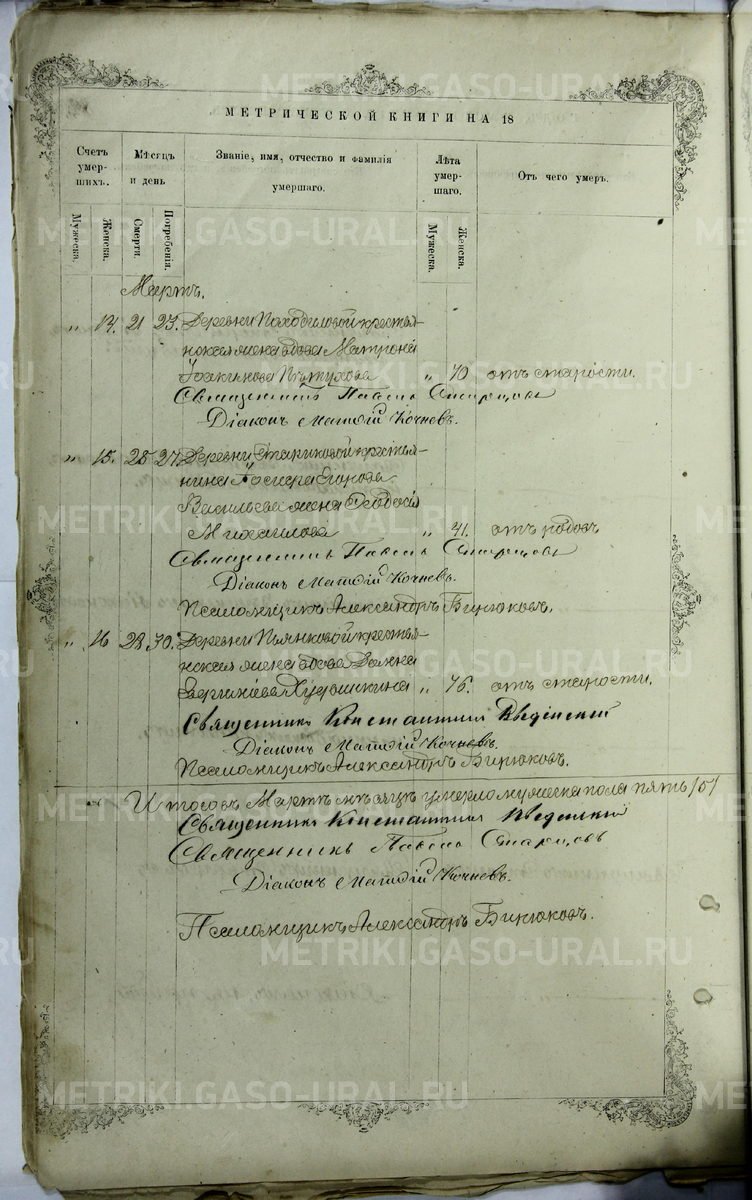 МЕТРИЧЕСКОЙ КНИГИ НА 18
Счетъ умер-шихъ.
Мужеска.
Женска.
Мѣсяцъ и день
Смерти.
Погребенія.
Званіе, имя, отчество и фамилія
умершаго.
Лѣта умер-шаго.
Мужеска.
Женска.
Отъ чего умеръ.
Мартъ.
„ 14. 21 23. Деревни Походиловой крестья-
нская жена вдова Матрона
Іоакимова Пѣтухова „ 70 отъ старости.
Священникъ Павелъ Старцовъ
Діаконъ Матѳій Кочневъ.
„ 15. 25 27. Деревни Стариковой крестья-
нина Егорова
Васильева жена Ѳеодосія
Михаилова „ 41. отъ родовъ
Священникъ Павелъ Старцовъ
Діаконъ Матѳій Кочневъ.
Псаломщикъ Александръ Бирюковъ.
„ 16 28 30. Деревни Пьянковой крестья-
нская жена вдова
Худошкина „ 76. отъ старости.
Священникъ Константинъ Введенскій
Діаконъ Матѳій Кочневъ.
Псаломщикъ Александръ Бирюковъ.
Итого въ Мартѣ мѣсяцѣ умерло мужеска пола пять /5/
Священникъ Константинъ Введенскій
Священникъ Павелъ Старцовъ
Діаконъ Матѳій Кочневъ.
Псаломщикъ Александръ Бирюковъ.
METRIKI.GASO-URAL.RU